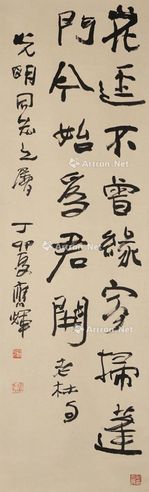 花迳不曾緣客掃蓬
門今始爲君開 老杜句
光明同志之屬
丁卯夏 寶輝
Artron.Net